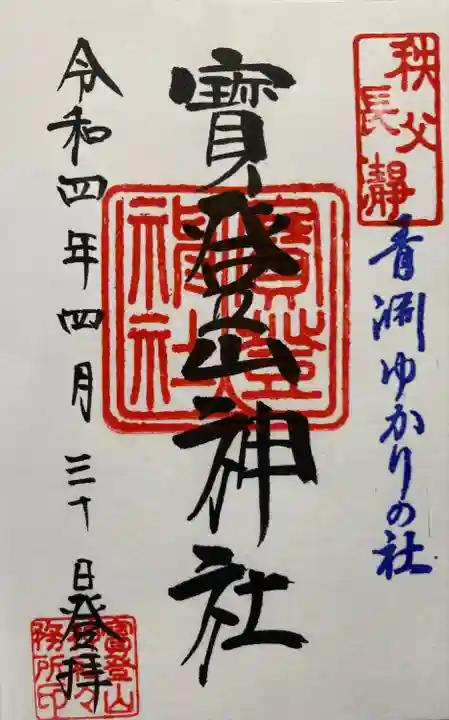 秩父
長瀞
青淵ゆかりの社
寳登山神社
寳登山
神社
令和四年四月三十日登拝
寳登山
神社々
務所印